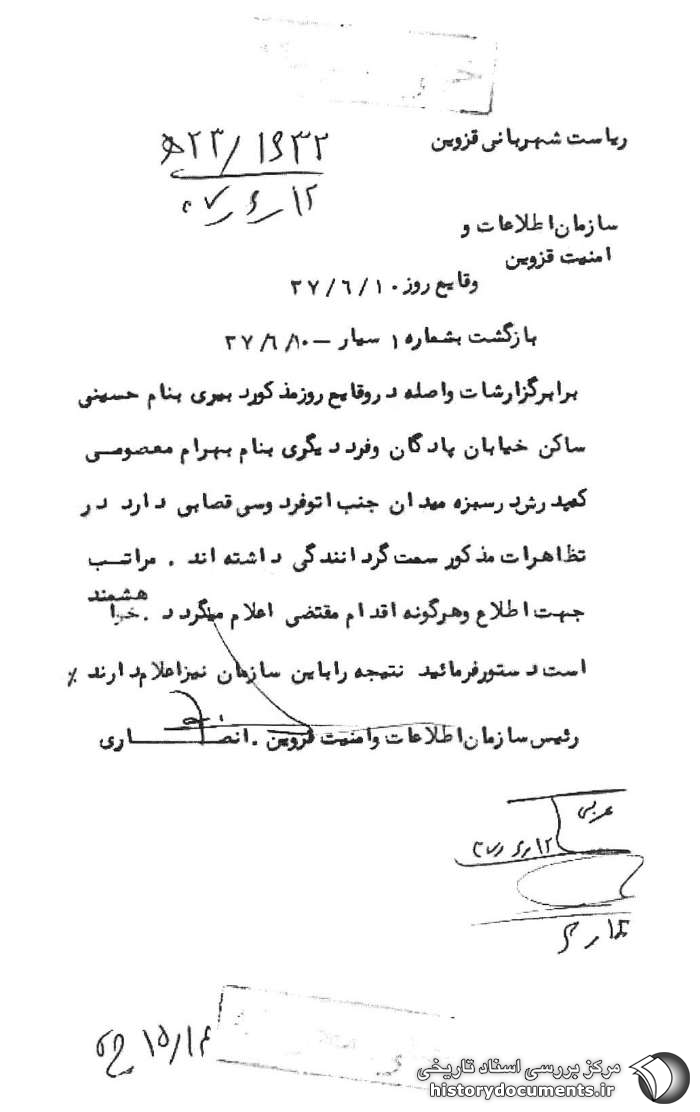 ریاست شهربانی قزوین
۱۹۳۲/۲۳ﻫ
۱۲ر۶ر۳۷
سازمان اطلاعات و
امنیت قزوین
وقایع روز ۳۷/۶/۱۰
بازگشت بشماره ۱ سیار – ۳۷/۶/۱۰
برابر گزارشات واصله در وقایع روز مذکور دبیری بنام حسینی
ساکن خیابان پادگان و فرد دیگری بنام بهرام معصومی
که پدرش در سبزه میدان جنب اتو فردوسی قصابی دارد در
تظاهرات مذکور سمت گردانندگی داشته اند . مراتب
جهت اطلاع و هرگونه اقدام مقتضی اعلام میگردد . خوا
هشمند
است دستور فرمائید نتیجه را باین سازمان نیز اعلام دارند ٪
رئیس سازمان اطلاعات و امنیت قزوین . انصاری
عربی
۱۲ر۶ر۳۷
۱۵/۱۴
مرکز بررسی اسناد تاریخی
historydocuments.ir